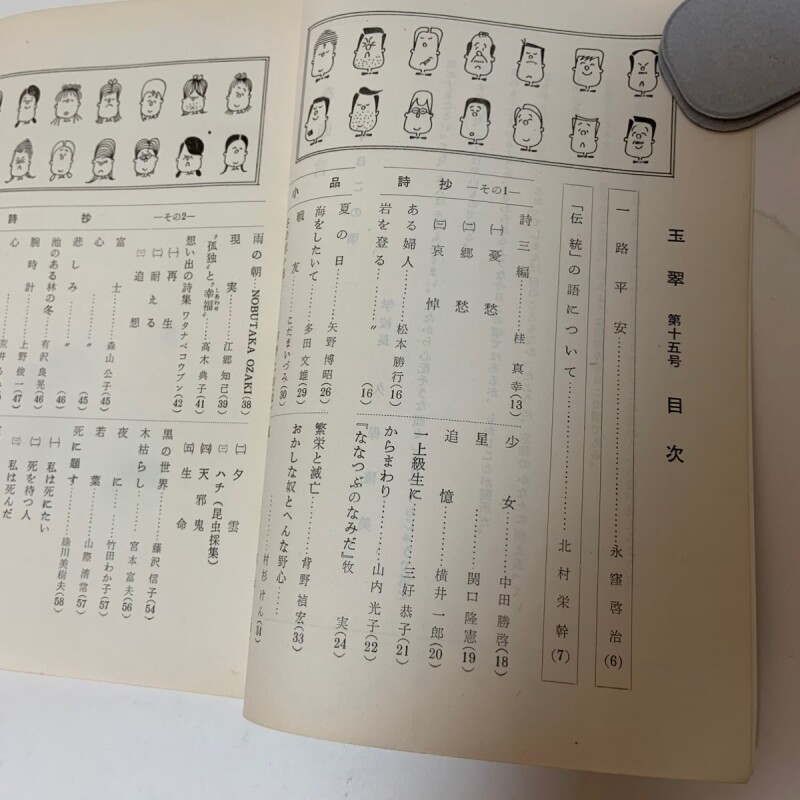 玉翠 第十五号 目次
一路平安……永窪啓治(6)
「伝統」の語について……北村栄幹(7)
詩抄 ―その1―
詩三編……桂真幸(13)
㈠憂愁
㈡郷愁
㈢哀悼
ある婦人……松本勝行(16)
岩を登る……〃(16)
少女……中田勝啓(18)
星……関口隆憲(19)
追憶……横井一郎(20)
一上級生に……三好恭子(21)
からまわり……山内光子(22)
『ななつぶのなみだ』牧実(24)
小品
夏の日……矢野博昭(26)
海をしたいて……多田文雄(29)
戦友……こだまいづみ(30)
繁栄と滅亡……背野禎宏(33)
おかしな奴とへんな野心……村杉けん(34)
詩抄 ―その2―
雨の朝…NOBUTAKA OZAKI(38)
現実……江郷知己(39)
"孤独"と"幸福"しあわせ……高木典子(41)
想い出の詩集 ワタナベコウブン(42)
㈠再生
㈡耐える
㈢追想
富士……森山公子(45)
心……〃(45)
悲しみ……〃(46)
池のある林の冬…有沢良晃(46)
腕時計……上野俊一(47)
心
㈡夕雲
㈢ハチ(昆虫採集)
㈣天邪鬼
㈤生命
黒の世界……藤沢信子(54)
木枯らし……宮本富夫(56)
夜に……竹田わか子(57)
若葉……山際清常(57)
死に題す……緑川美樹夫(58)
㈠私は死にたい
㈡死を待つ人
㈢私は死んだ